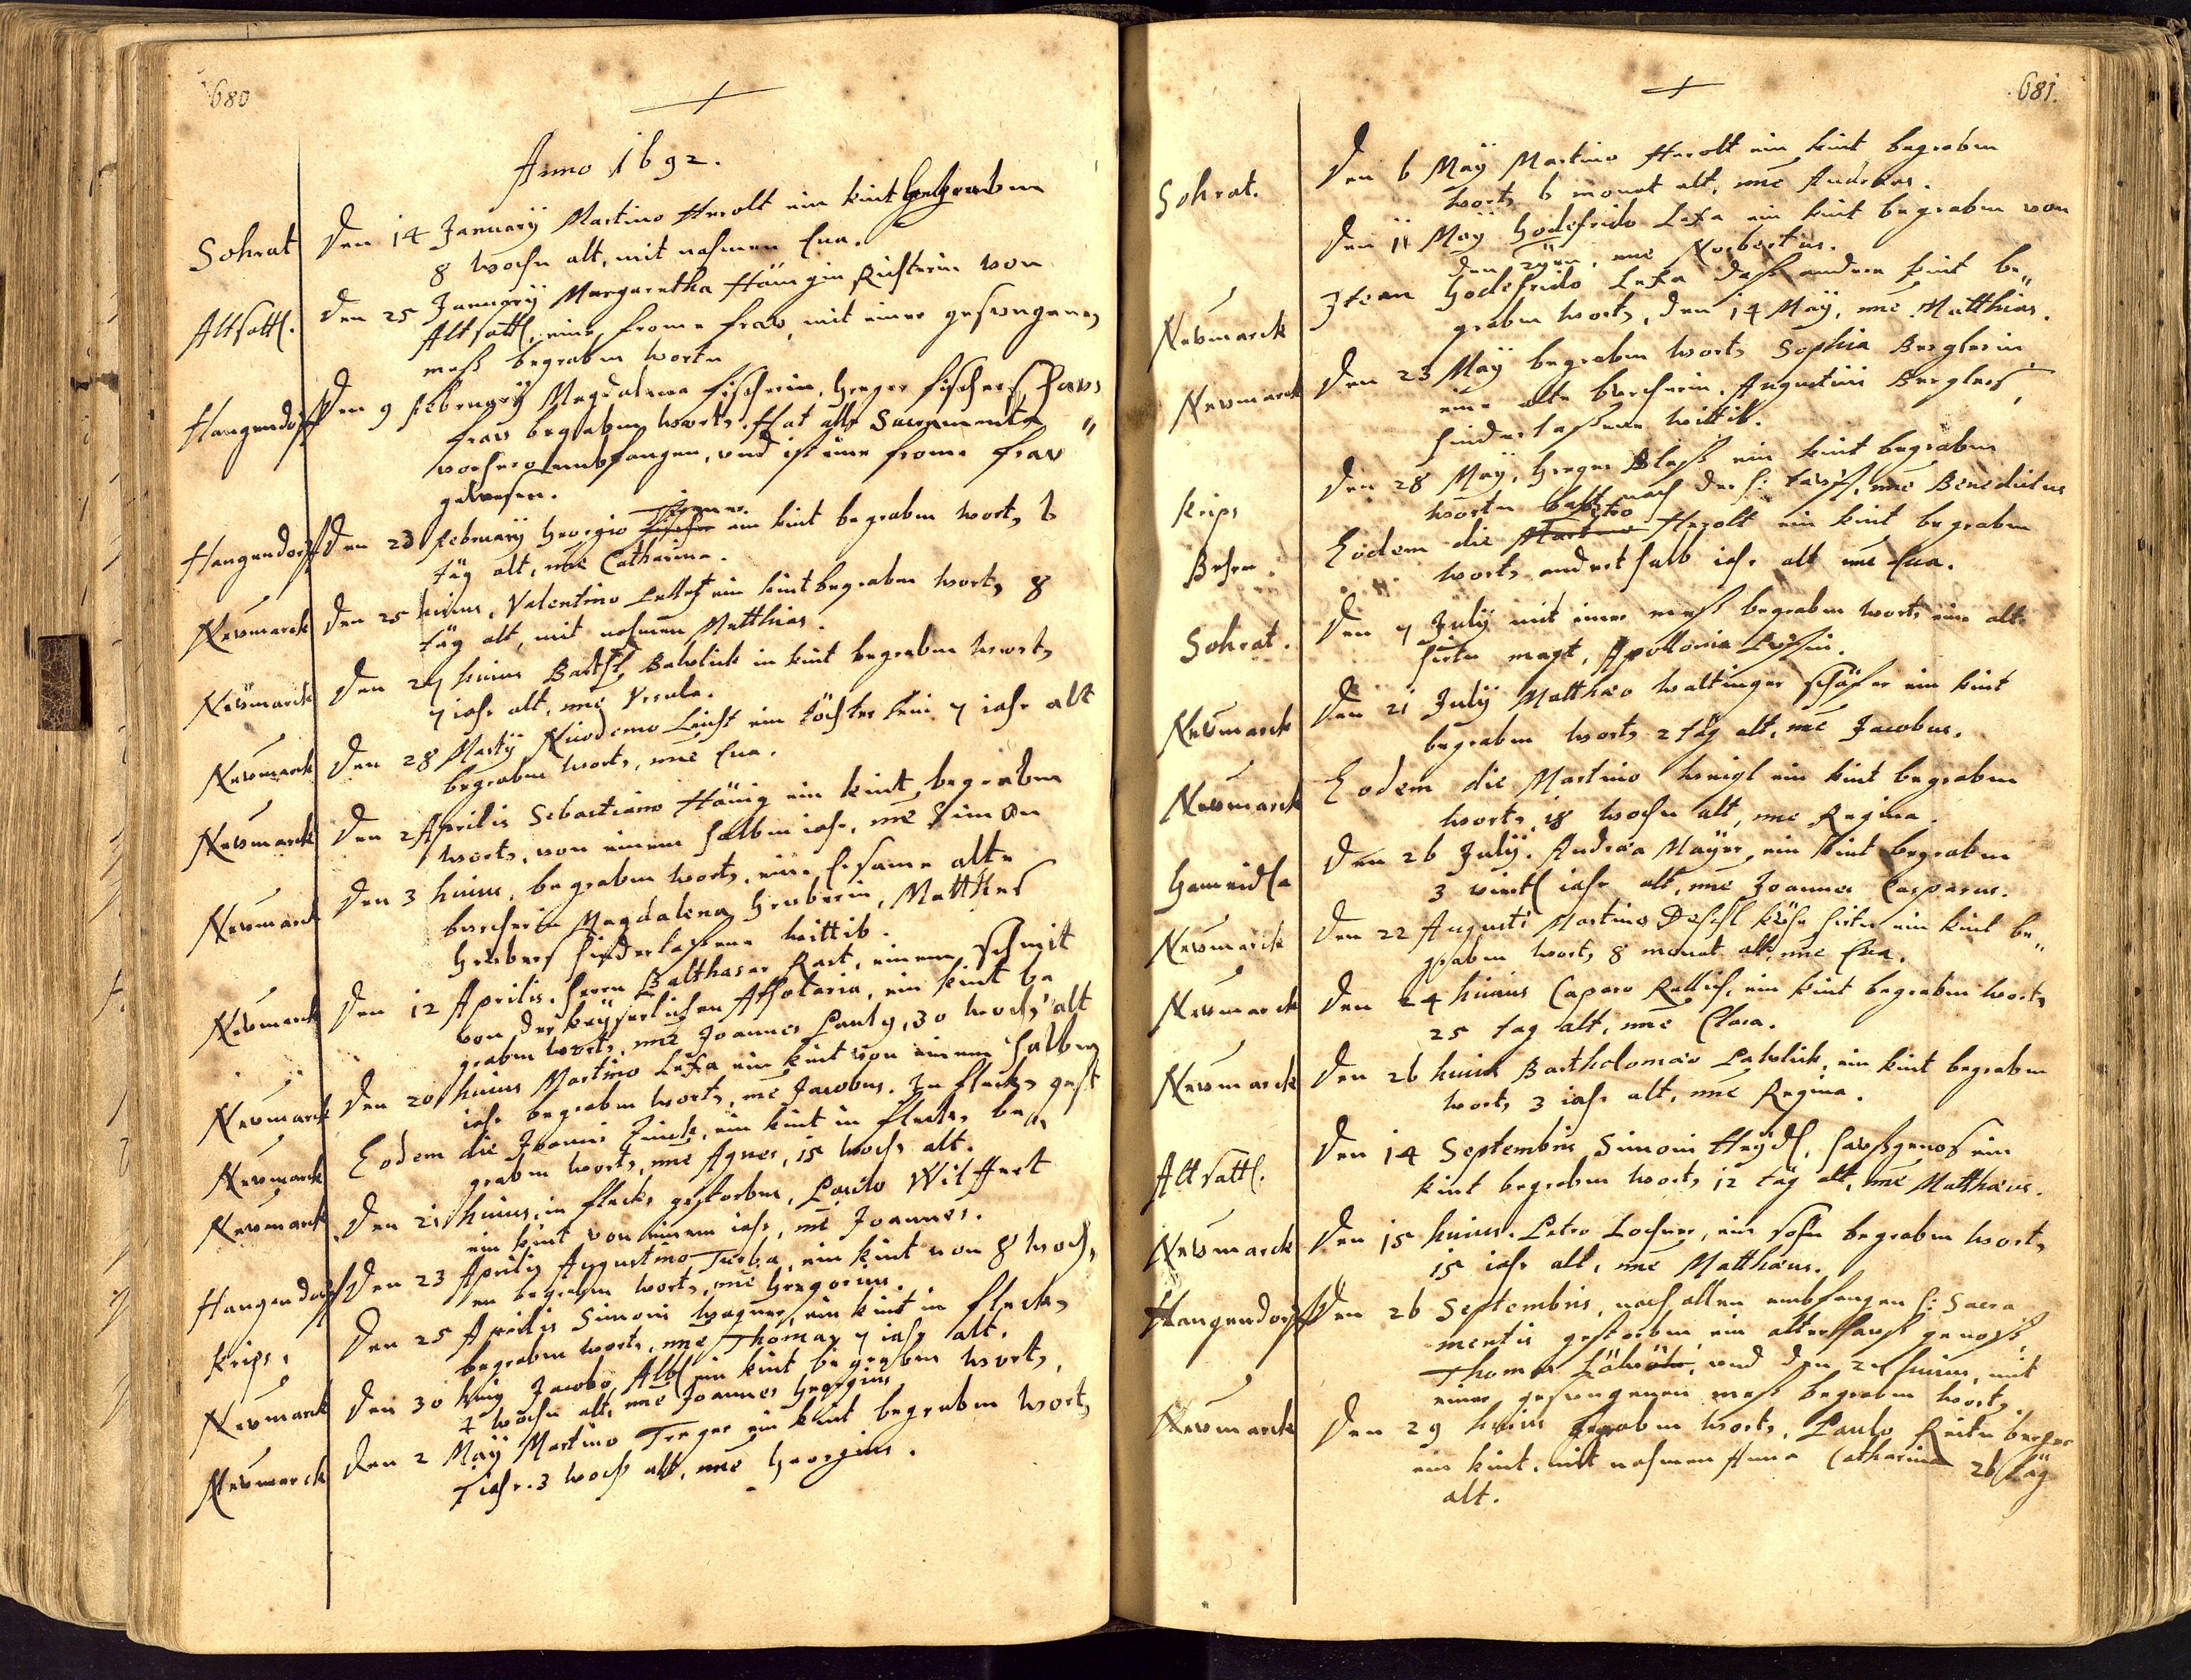 680
Anno 1692.
Sohrat Den 14 January Martino Herolt ein kint begraben
8 wochn alt, mit nahmen Eua.
Altsattl. Den 25 January Margaretha Hänigin Richterin von
Altsattl, eine frome fraw, mit einer gesungenen
meß begraben worten
Hangendorff Den 9 February Magdalena Fischerin, Greger Fischers haus
fraw begraben worten. Hat alle Sacramenta
vorhero embfangen, und ist eine frome fraw
gewesen.
Hangendorff Den 23 February Georgio ein kint begraben wort, 6
täg alt, nne Catharina.
Newmarck Den 25 huius, Valentino ein kint begraben wort, 8
täg alt, mit nahmen Matthias.
Newmarck Den 27 huius Barthl Bawlick ein kint begraben wort,
7 iahr alt, nne Vrsula.
Newmarck Den 28 Martij Nicodemo Leicht ein töchterlein 7 iahr alt
begraben wort, nne Eua.
Newmarck Den 2 Aprilis Sebastiano Hänig ein kint begraben
wort, von einem halben iahr, nne Simon
Newmarck Den 3 huius, begraben wort, eine Ersame alte
burgerin Magdalena Gruberin, Matthes
Grubers hinderlaßene wittib.
Newmarck Den 12 Aprilis. Herrn Balthasar Rast, einem schmit
von der keyserlichen, ein kint be
graben wort, nne Joannes Paulq, 30 woch alt
Newmarck Den 20 huius Martino Lexa ein kint von einem halben
iahr begraben wort, nne Jacobus. In flecken gest
Newmarck Eodem die Joanni Zinck, ein kint in flecken be„
graben wort, nne Agnes, 15 woch alt.
Newmarck Den 21 huius, in flecken gestorben, Paulo Wilffert
ein kint von einem iahr, nne Joannes.
Hangendorff Den 23 Aprilis Augustino Turba, ein kint von 8 woch„
en begraben wort, nne Gregorius.
Krips, Den 25 Aprilis Simoni Wagner, ein kint in flecken
begraben wort, nne Thomas 7 iahr alt.
Newmarck Den 30 huius Jacobo Albl ein kint begraben wort,
7 wochn alt, nne Joannes Georgius
Newmarck Den 2 Maÿ Martino Treger ein kint begraben wort,
1 iahr. 3 woch alt, nne Georgius.
681.
Sohrat. Den 6 Maÿ Martino Herolt ein kint begraben
wort, 6 monat alt, nne Andreas.
Den 11 Maÿ Godefrido Lexa ein kint begraben von
nne Norbertus.
Newmarck Jtem Godefrido Lexa daß andere kint be„
graben wort, den 14 Maÿ, nne Matthias.
Newmarck Den 23 Maÿ begraben wort, Sophia Berglerin
eine alte burgerin, Augustini Berglers,
hinderlaßene wittib.
Krips Den 28 Maÿ, Greger Blaß ein kint begraben
worten nach der h: tauff, nne Benedictus
Behen. Eodem die Petro Herolt ein kint begraben
wort, anderthalb iahr alt nne Eua.
Sohrat. Den 7 Julÿ mit einer meß begraben wort, eine alte
hirten magt, Apollonia
Newmarck Den 21 Julÿ Matthæo Waltinger schäfer ein kint
begraben wort, 2 täg alt, nne Jacobus.
Newmarck Eodem die Martino Weigl ein kint begraben
wort, 18 wochn alt, nne Regina.
Den 26 Julÿ. Andrea Maÿer, ein kint begraben
3 viertl iahr alt, nne Joannes Casparus.
Newmarck Den 22 Augusti Martino küh hirten ein kint be„
graben wort, 8 monat alt, nne Eua.
Newmarck Den 24 huius Casparo, ein kint begraben wort,
25 tag alt, nne Clara.
Newmarck Den 26 huius Bartholomæo Pawlick, ein kint begraben
wort, 3 iahr alt, nne Regina.
Altsattl. Den 14 Septembris Simoni Heÿdl, haußgenos ein
kint begraben wort, 12 täg alt, nne Matthæus.
Newmarck Den 15 huius. Petro Lochner, ein sohn begraben wort,
15 iahr alt, nne Matthæus.
Hangendorff Den 26 Septembris, nach allen embfangen h: Sacra
mentis gestorben ein alter haußgenoß,
Thoma, und den 27 huius, mit
einer gesungenen meß begraben wort,
Newmarck Den 29 huius begraben wort, Paulo Reitnberger
ein kint, mit nahmen Anna Catharina 26 täg
alt.